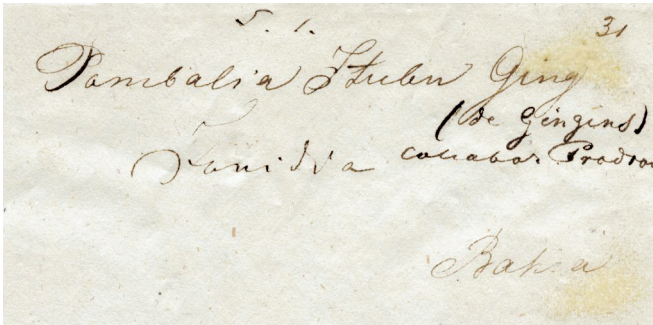 5. 1.
31
Pombalia Itubu Ging
(de Gingins)
Jonidia collabor Prodro
Bahia